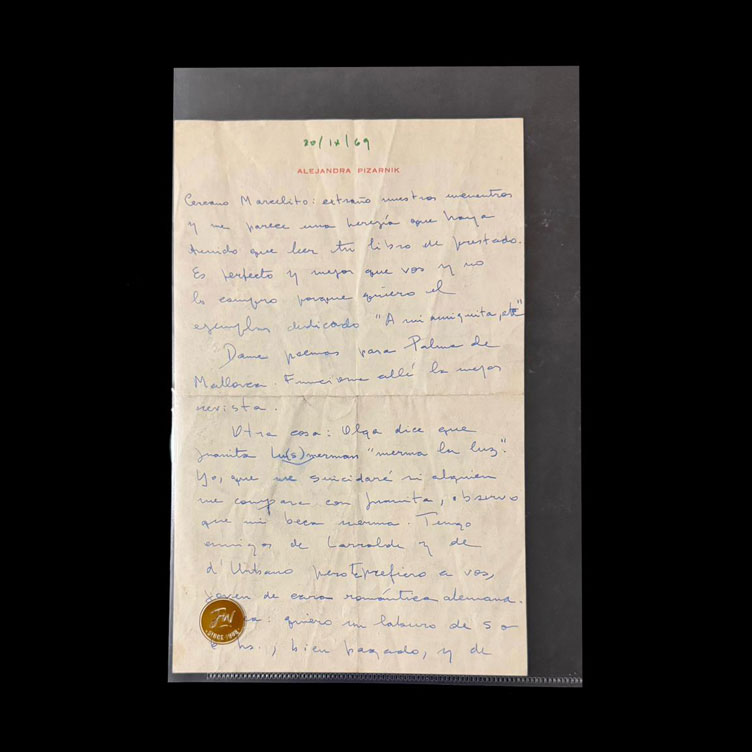 20/IX/69
ALEJANDRA PIZARNIK
Cercano Marcelito: extraño nuestros encuentros
y me parece una herejía que haya
tenido que leer tu libro de prestado.
Es perfecto y mejor que vos y no
lo compro porque quiero el
ejemplar dedicado "A mi amiguita, etc"
Dame poemas para Palma de
Mallorca. Funciona allí la mejor
revista.
Otra cosa: Olga dice que
Juanita Lu(s)merman "merma la luz".
Yo, que me suicidaré si alguien
me compara con Juanita, observo
que mi beca merma. Tengo
amigos de Larralde y de
d'Urbano pero prefiero a vos,
joven de cara romántica alemana.
quiero un laburo de 5 o
hs., bien pagado, y de
JW
SINCE 1993